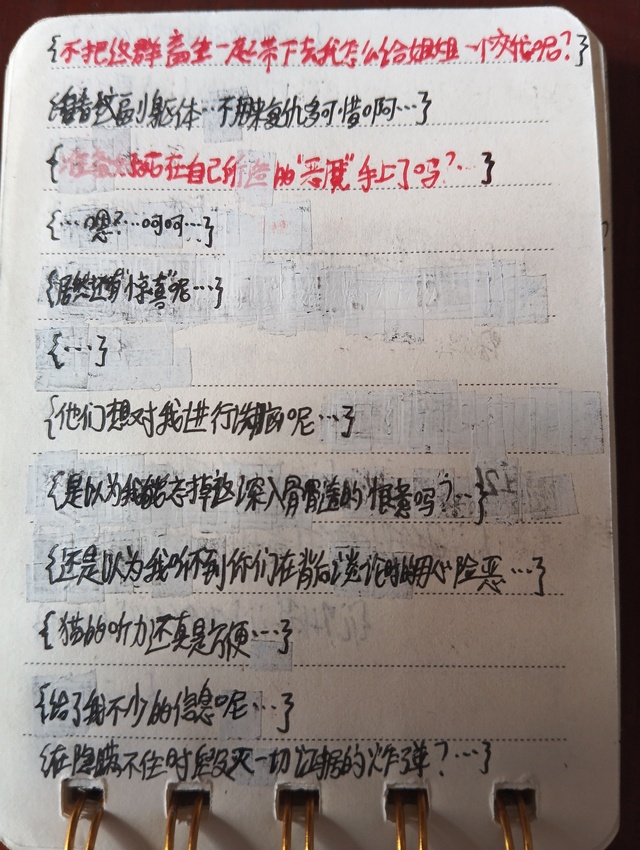 {不把这群畜生一起带下去我怎么给姐姐一个交代呢?}
{维春这副躯体…不用来复仇多可惜啊…}
{死在自己所造的"恶魔"手上了吗?…}
{…嗯?…呵呵…}
{居然还有"惊喜"呢…}
{…}
{他们想对我进行洗脑呢…}
{是以为我能忘掉这深入骨髓的恨意吗?…}
{还是以为我听不到你们在背后谈论时的用心险恶…}
{猫的听力还真是方便…}
{给了我不少的信息呢…}
{在隐瞒不住时毁灭一切证据的炸弹?…}